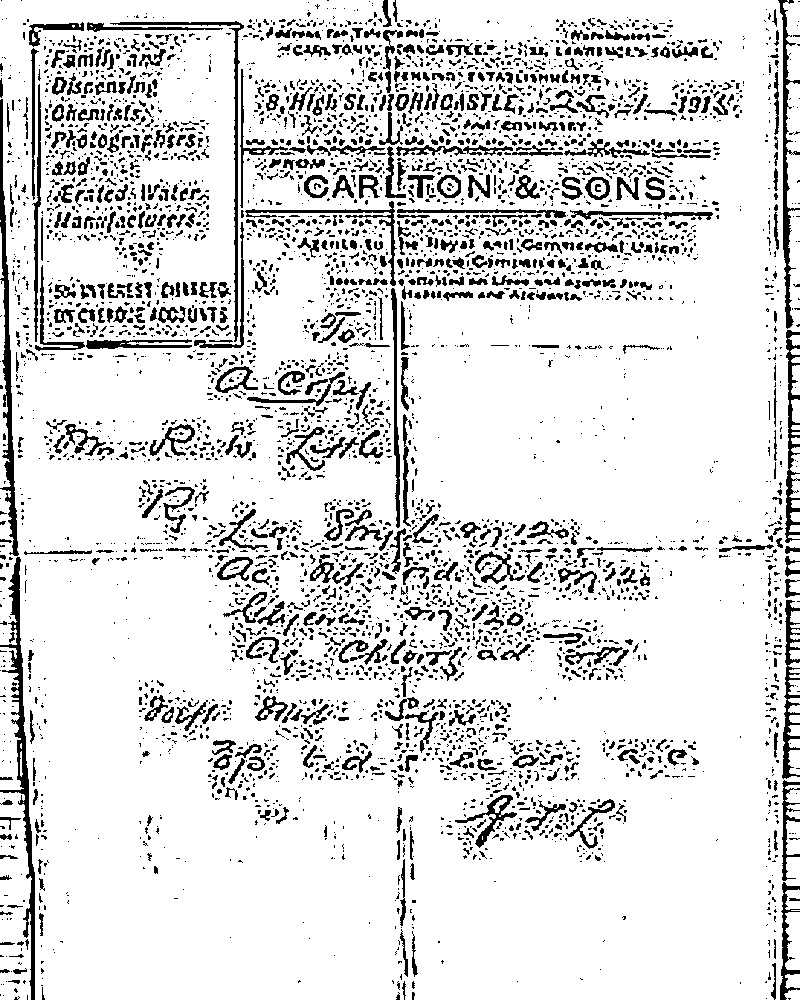 Family and
Dispensing
Chemists,
Photographers
and
Ærated Water
Manufacturers.
5% INTEREST CHARGED
ON OVERDUE ACCOUNTS
Address for Telegrams—
"CARLTONS, HORNCASTLE."
Warehouses—
ST. LAWRENCE'S SQUARE.
DISPENSING ESTABLISHMENTS,
8, High St., HORNCASTLE, 25-1-191
AND CONINGSBY.
FROM
CARLTON & SONS.
Agents to the Royal and Commercial Union
Insurance Companies, &c.
Insurances effected on Lives and against Fire,
Hailstorm and Accidents.
To
A Copy
Mr. R. W. Little
Rx
Liq Stry m 120
Ac Nit Dil m 120
Glycerin m 120
Aq Chlorof ad
Mist
t.d. a.c.